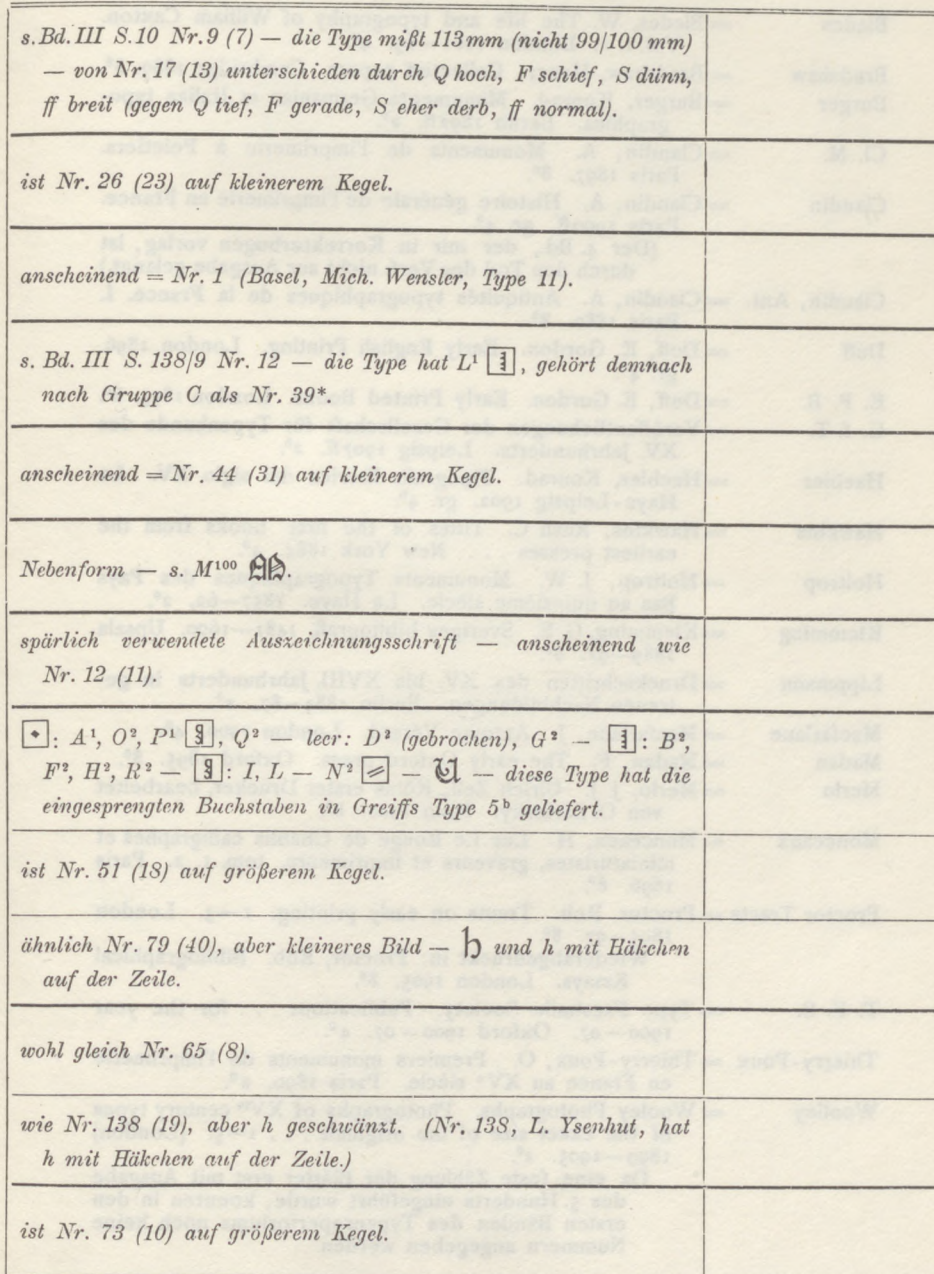 s. Bd. III S. 10 Nr. 9 (7) — die Type mißt 113 mm (nicht 99/100 mm)
— von Nr. 17 (13) unterschieden durch Q hoch, F schief, S dünn,
ff breit (gegen Q tief, F gerade, S eher derb, ff normal).
ist Nr. 26 (23) auf kleinerem Kegel.
anscheinend = Nr. 1 (Basel, Mich. Wensler, Type 11).
s. Bd. III S. 138/9 Nr. 12 — die Type hat L¹, gehört demnach
nach Gruppe C als Nr. 39*.
anscheinend = Nr. 44 (31) auf kleinerem Kegel.
Nebenform — s. M¹⁰⁰
spärlich verwendete Auszeichnungsschrift — anscheinend wie
Nr. 12 (11).
: A¹, O², P¹, Q² — leer: D² (gebrochen), G² — : B²,
F², H², R² — : I, L — N² — 𝔘 — diese Type hat die
eingesprengten Buchstaben in Greiffs Type 5ᵇ geliefert.
ist Nr. 51 (18) auf größerem Kegel.
ähnlich Nr. 79 (40), aber kleineres Bild — h und h mit Häkchen
auf der Zeile.
wohl gleich Nr. 65 (8).
wie Nr. 138 (19), aber h geschwänzt. (Nr. 138, L. Ysenhut, hat
h mit Häkchen auf der Zeile.)
ist Nr. 73 (10) auf größerem Kegel.